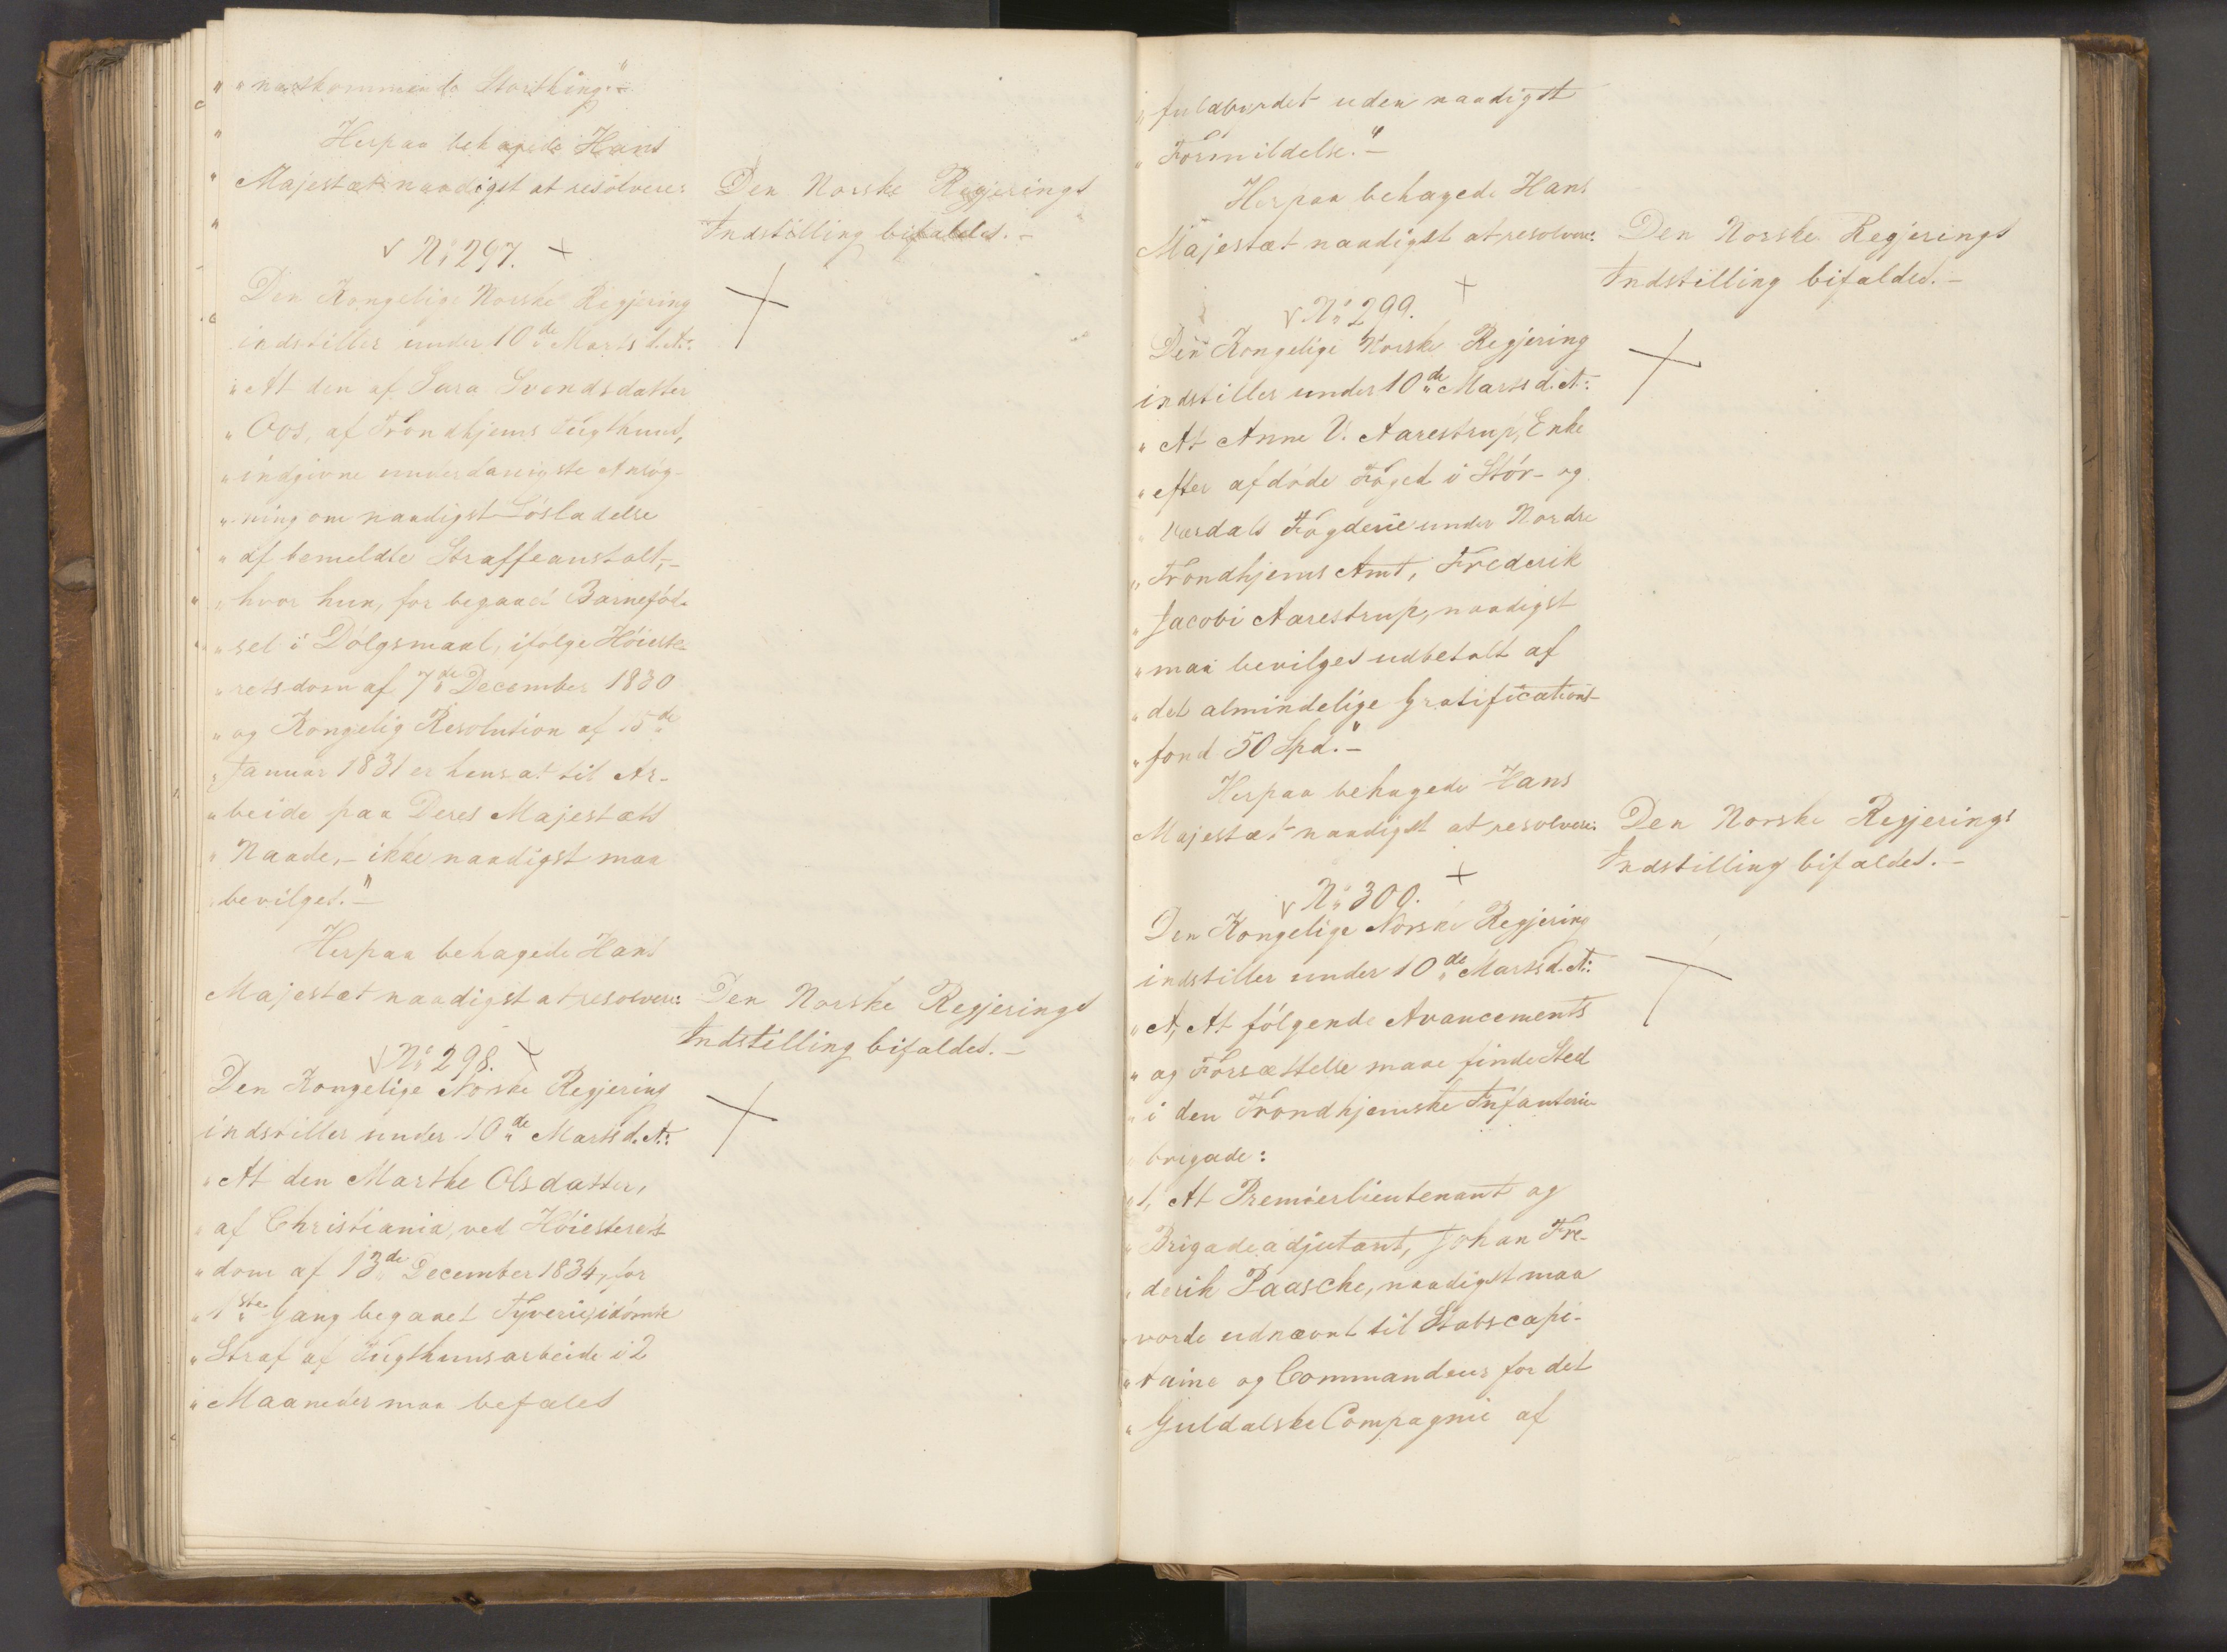 " næstkommende Storthing."-
Herpaa behagede Hans
Majestæt naadigst at resolvere:
Den Norske Regjerings
Indstilling bifaldes.-
No 297.
Den Kongelige Norske Regjering
indstiller under 10de Marts d. A.:
" At den af Sara Svendsdatter
" Oos, af Trondhjems Tugthuus,
" indgivne underdanigste Ansøg-
" ning om naadigst Løsladelse
" af bemeldte Straffeanstalt,-
" hvor hun, for begaaet Barnefød-
" sel i Dølgsmaal, ifølge Høieste-
" retsdom af 7de December 1830
" og Kongelig Resolution af 15de
" Januar 1831 er hensat til Ar-
" beide paa Deres Majestæts
" Naade,- ikke naadigst maa
" bevilges."-
Herpaa behagede Hans
Majestæt naadigst at resolvere:
Den Norske Regjerings
Indstilling bifaldes.-
No 298.
Den Kongelige Norske Regjering
indstiller under 10de Marts d. A.:
" At den Marthe Olsdatter,
" af Christiania, ved Høiesterets-
" dom af 13de December 1834, for
" 1ste Gang begaaet Tyverie, idømte
" Straf af Tugthuusarbeide i 2
" Maaneder maa befales
" fuldbyrdet uden naadigst
" Formildelse."-
Herpaa behagede Hans
Majestæt naadigst at resolvere:
Den Norske Regjerings
Indstilling bifaldes.-
No 299.
Den Kongelige Norske Regjering
indstiller under 10de Marts d. A.:
" At Anne V. Aarestrup, Enke
" efter afdøde Foged i Stør- og
" Værdals Fogderie under Nordre
" Trondhjems Amt, Frederik
" Jacobi Aarestrup, naadigst
" maa bevilges udbetalt af
" det almindelige Gratifications-
" fond 50 Spd."-
Herpaa behagede Hans
Majestæt naadigst at resolvere:
Den Norske Regjerings
Indstilling bifaldes.-
No 300.
Den Kongelige Norske Regjering
indstiller under 10de Marts d. A.:
" A, At følgende Avancements
" og Forsættelse maae finde Sted
" i den Trondhjemske Infanterie
" brigade:
" 1, At Premierlieutenant og
" Brigadeadjutant, Johan Fre-
" derik Paasche, naadigst maa
" vorde udnævnt til Stabscapi-
" taine og Commandeur for det
" Guldalske Compagnie af